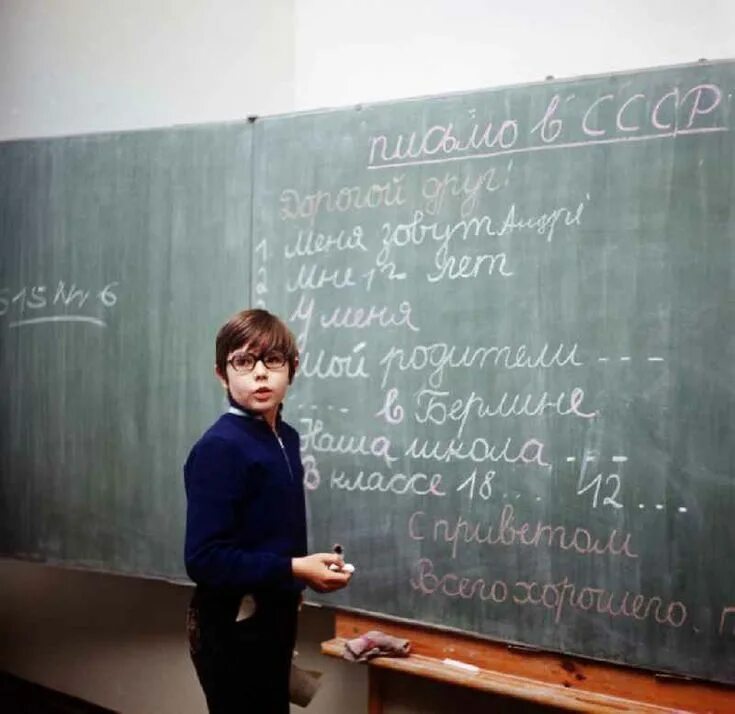 письмо в СССР
Дорогой друг!
1 Меня зовут Андрй
2 Мне 12 лет
У меня
Мой родители ---
.... в Берлине
Наша школа ...--
В классе 18 ... 12 ....
С приветом
Всего хорошего.
S15 Nr 6